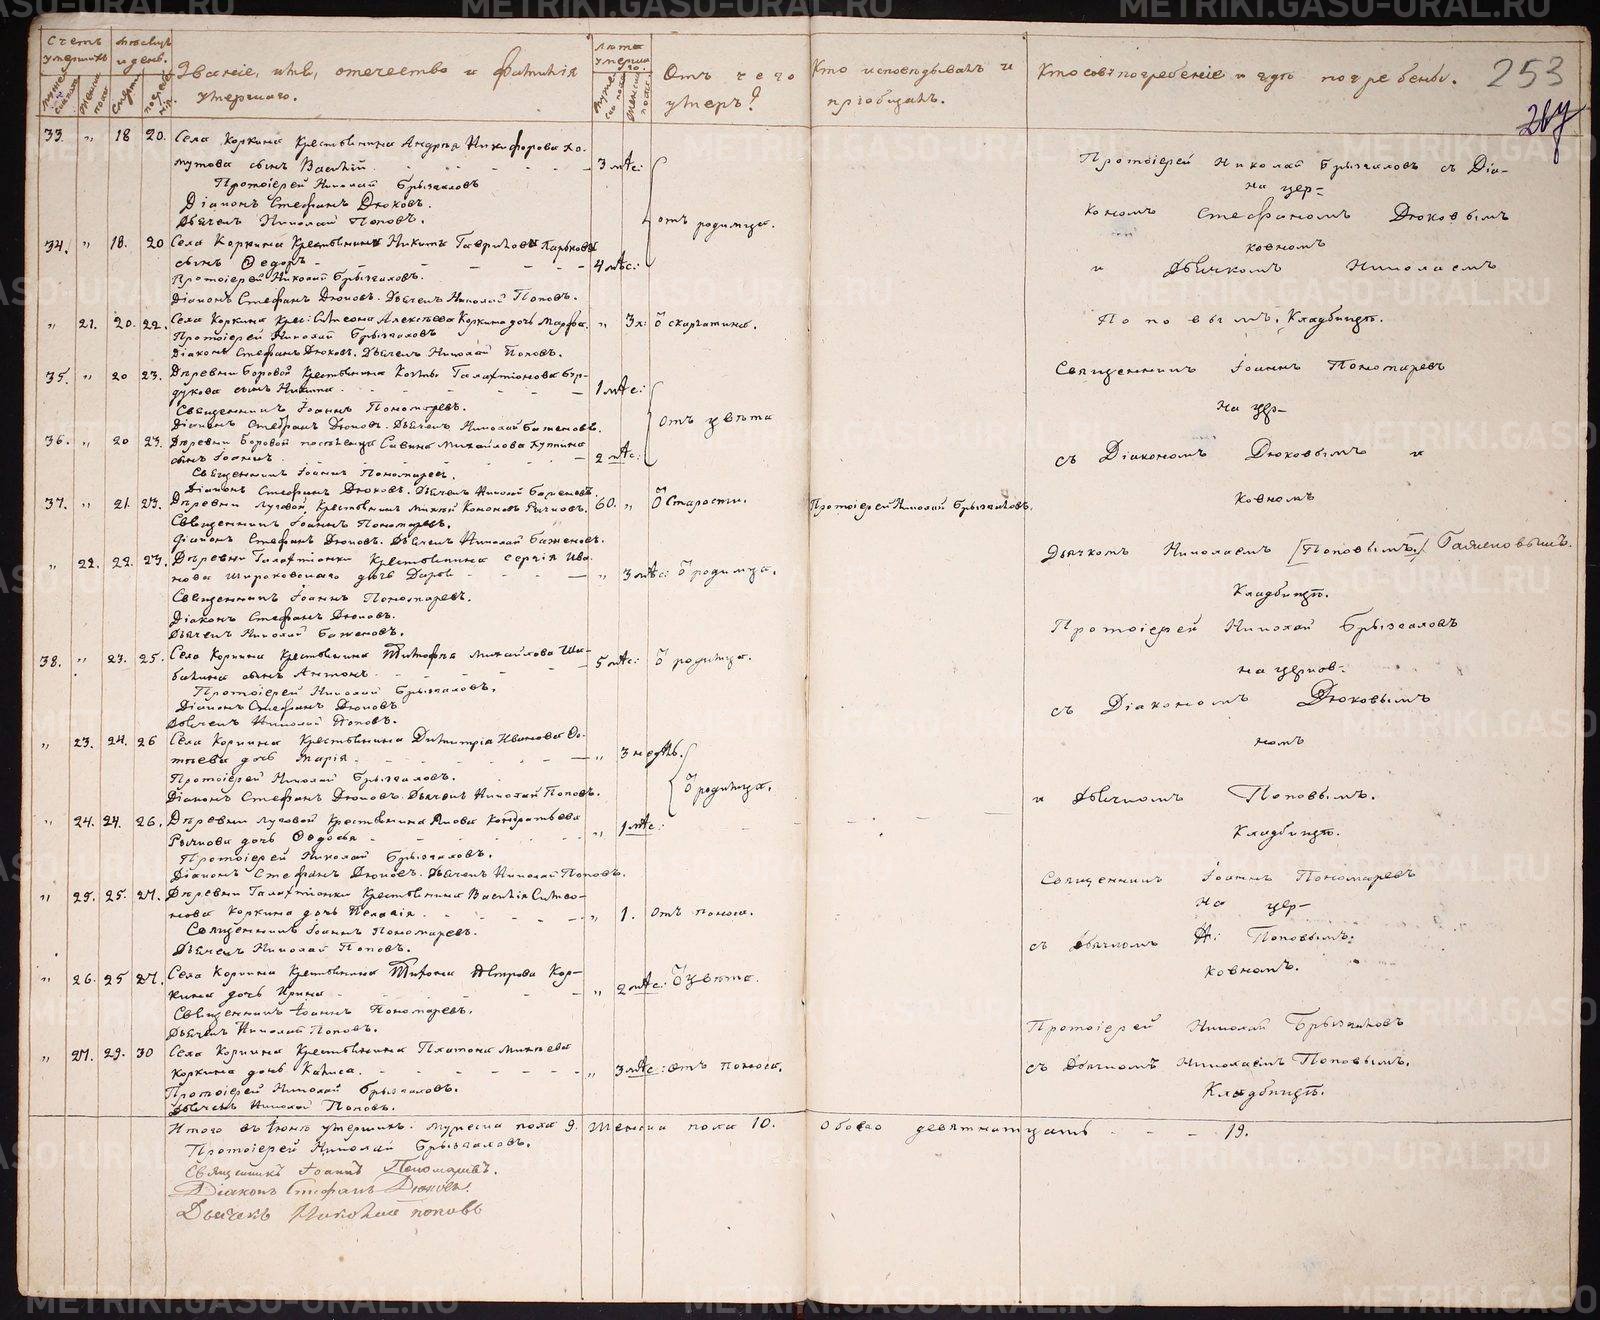 METRIKI.GASO-URAL.RU
Счетъ умершихъ
Мѣсяцъ и день.
Званіе, имя, отечество и фамилія умершаго.
Лѣта умершаго.
Отъ чего умеръ?
Кто исповѣдывалъ и пріобщалъ.
Кто сов: погребеніе и гдѣ погребены.
253
33. „ 18 20. Села Коркина Крестьянина Андрея Никифорова Хо-
мутова сынъ Василій. 3 мѣс:
Протоіерей Николай Брызгаловъ
Діаконъ Стефанъ Дюковъ.
Дьячекъ Николай Поповъ.
отъ родимца.
34. „ 18. 20 Села Коркина Крестьянина Никиты Гаврилова
сынъ Ѳедоръ 4 мѣс:
Протоіерей Николай Брызгаловъ.
Діаконъ Стефанъ Дюковъ. Дьячекъ Николай Поповъ.
„ 21. 20. 22. Села Коркина Крес: Симеона Алексѣева Коркина дочь Марфа. „ 3 Ѿ скарлатины.
Протоіерей Николай Брызгаловъ
Діаконъ Стефанъ Дюковъ. Дьячекъ Николай Поповъ.
35. „ 20 23. Деревни Боровой Крестьянина Козмы Галактіонова Бер-
дюкова сынъ Никита 1 мѣс:
Священникъ Іоаннъ Пономаревъ.
Діаконъ Стефанъ Дюковъ. Дьячекъ Николай Баженовъ.
отъ цвѣта
36. „ 20 23. Деревни Боровой поселенца Савина Михайлова
сынъ Іоаннъ. 2 мѣс:
Священникъ Іоаннъ Пономаревъ.
Діаконъ Стефанъ Дюковъ. Дьячекъ Николай Баженовъ.
37. „ 21. 23. Деревни Луговой, Крестьянинъ Кононовъ Рычковъ. 60. „ Ѿ Старости. Протоіерей Николай Брызгаловъ.
Священникъ Іоаннъ Пономаревъ.
Діаконъ Стефанъ Дюковъ. Дьячекъ Николай Баженовъ.
„ 22. 22. 23. Деревни Галактіонки Крестьянина Сергія Ива-
нова Широковскаго дочь Дарья „ 3 мѣс: Ѿ родимца.
Священникъ Іоаннъ Пономаревъ.
Діаконъ Стефанъ Дюковъ.
Дьячекъ Николай Баженовъ.
38. „ 23. 25. Села Коркина Крестьянина Тимофея Михайлова Ша-
балина сынъ Антонъ 5 мѣс: Ѿ родимца.
Протоіерей Николай Брызгаловъ.
Діаконъ Стефанъ Дюковъ
Дьячекъ Николай Поповъ.
„ 23. 24. 26 Села Коркина Крестьянина Димитрія Иванова Фо-
тѣева дочь Марія. „ 3 недѣль.
Протоіерей Николай Брызгаловъ.
Діаконъ Стефанъ Дюковъ. Дьячекъ Николай Поповъ.
Ѿ родимца.
„ 24. 24. 26. Деревни Луговой Крестьянина Якова Кондратьева
Рычкова дочь Ѳедосья „ 1 мѣс:
Протоіерей Николай Брызгаловъ.
Діаконъ Стефанъ Дюковъ. Дьячекъ Николай Поповъ.
„ 25. 25. 27. Деревни Галактіонки Крестьянина Василія Симео-
нова Коркина дочь Пелагія. „ 1. отъ поноса.
Священникъ Іоаннъ Пономаревъ.
Дьячекъ Николай Поповъ.
„ 26. 25 27. Села Коркина Крестьянина Тихона Петрова Кор-
кина дочь Ирина „ 2 мѣс: Ѿ цвѣта.
Священникъ Іоаннъ Пономаревъ.
Дьячекъ Николай Поповъ.
„ 27. 29. 30 Села Коркина Крестьянина Платона Микѣева
Коркина дочь „ 3 мѣс: отъ поноса.
Протоіерей Николай Брызгаловъ.
Дьячекъ Николай Поповъ.
Протоіерей Николай Брызгаловъ съ Діа-
на цер-
кономъ Стефаномъ Дюковымъ
ковномъ
и Дьячкомъ Николаемъ
Поповымъ. Кладбищѣ.
Священникъ Іоаннъ Пономаревъ
На цер-
съ Діакономъ Дюковымъ и
ковномъ
Дьячкомъ Николаемъ [Поповымъ.] Баженовымъ.
Кладбищѣ.
Протоіерей Николай Брызгаловъ
на церков-
съ Діакономъ Дюковымъ
номъ
и Дьячкомъ Поповымъ.
Кладбищѣ.
Священникъ Іоаннъ Пономаревъ
На цер-
съ Дьячкомъ Н: Поповымъ.
ковномъ.
Протоіерей Николай Брызгаловъ
съ Дьячкомъ Николаемъ Поповымъ.
Кладбищѣ.
Итого въ Іюнѣ умершихъ. Мужеска пола 9. Женска пола 10. Обоего девятнатцать 19.
Протоіерей Николай Брызгаловъ.
Священникъ Іоаннъ Пономаревъ.
Діаконъ Стефанъ Дюковъ.
Дьячекъ Николай поповъ